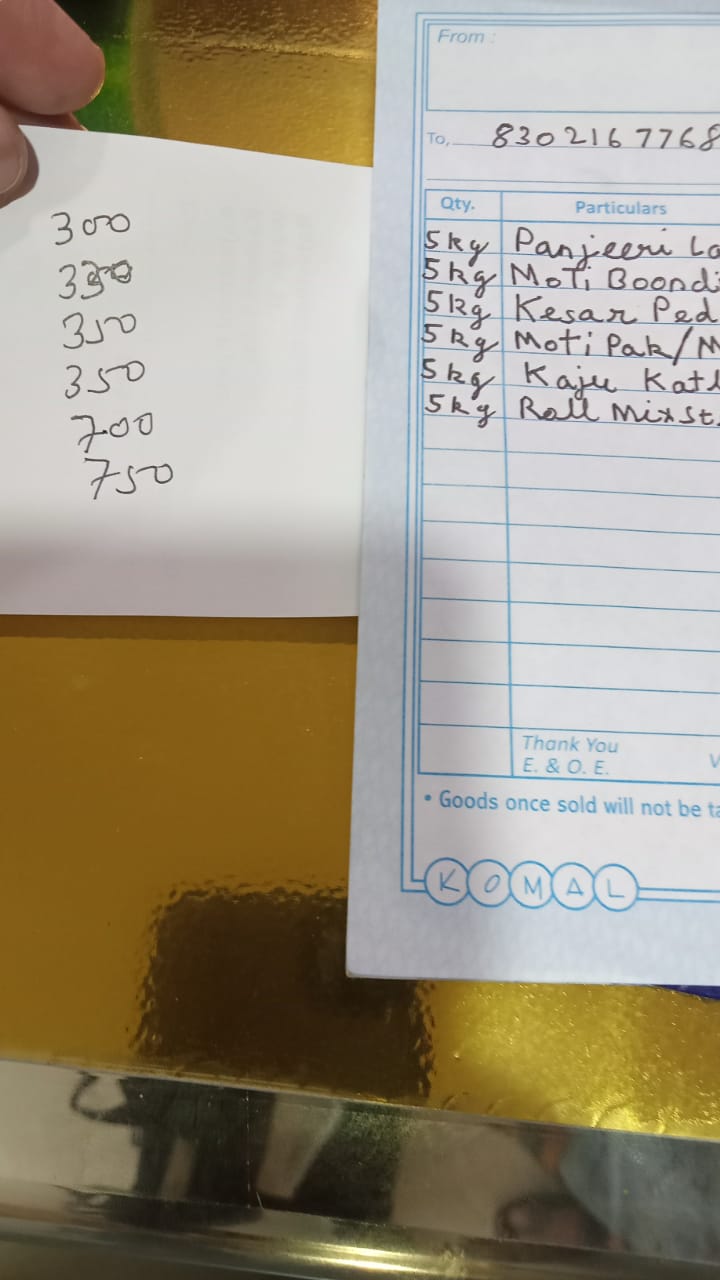 300
350
350
700
750
From :
To, 8302167768
Qty. Particulars
5kg Panjeeri La
5kg Moti Boondi
5kg Kesar Ped
5kg Moti Pak/M
5kg Kaju Katl
5kg Roll Mix St.
Thank You
E. & O. E.
• Goods once sold will not be ta
KOMAL